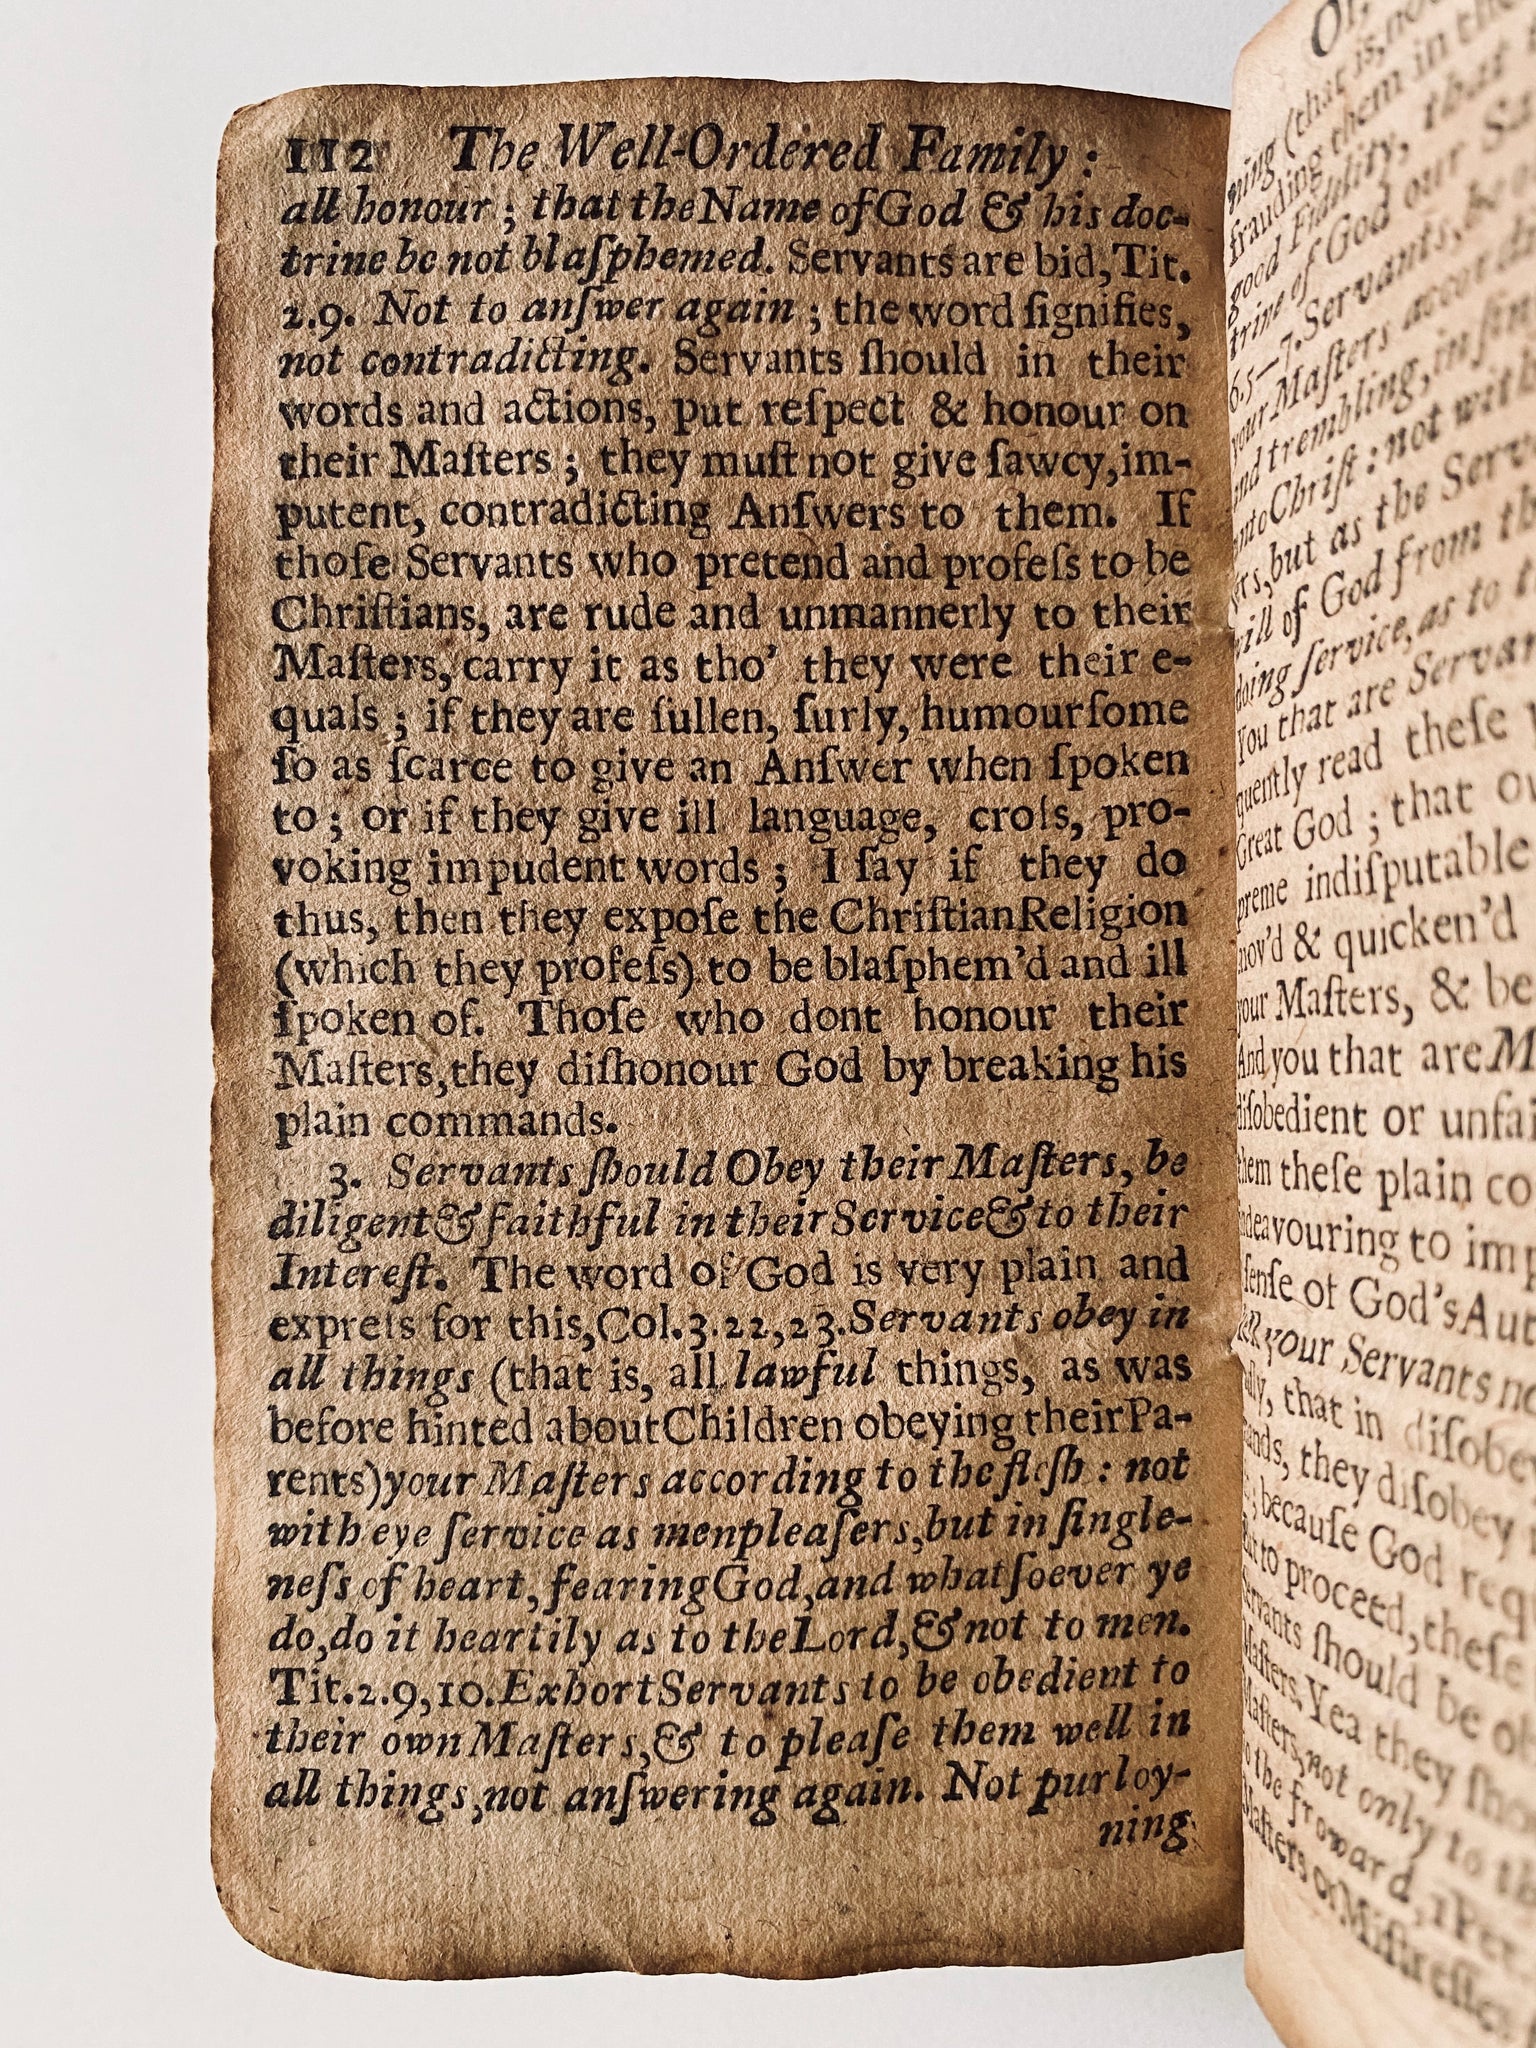 112 The Well-Ordered Family :
all honour ; that the Name of God & his doc-
trine be not blaſphemed. Servants are bid, Tit.
2.9. Not to anſwer again ; the word ſignifies,
not contradicting. Servants ſhould in their
words and actions, put reſpect & honour on
their Maſters ; they muſt not give ſawcy, im-
putent, contradicting Anſwers to them. If
thoſe Servants who pretend and profeſs to be
Chriſtians, are rude and unmannerly to their
Maſters, carry it as tho' they were their e-
quals ; if they are ſullen, ſurly, humourſome
ſo as ſcarce to give an Anſwer when ſpoken
to ; or if they give ill language, croſs, pro-
voking impudent words ; I ſay if they do
thus, then they expoſe the Chriſtian Religion
(which they profeſs) to be blaſphem'd and ill
ſpoken of. Thoſe who dont honour their
Maſters, they diſhonour God by breaking his
plain commands.
3. Servants ſhould Obey their Maſters, be
diligent & faithful in their Service & to their
Intereſt. The word of God is very plain and
expreſs for this, Col. 3. 22, 23. Servants obey in
all things (that is, all lawful things, as was
before hinted about Children obeying their Pa-
rents) your Maſters according to the fleſh : not
with eye ſervice as menpleaſers, but in ſingle-
neſs of heart, fearing God, and whatſoever ye
do, do it heartily as to the Lord, & not to men.
Tit. 2. 9, 10. Exhort Servants to be obedient to
their own Maſters, & to pleaſe them well in
all things, not anſwering again. Not purloy-
ning
ning (that is, no
frauding them in the
good Fidelity, that t
trine of God our Sa
6. 5—7. Servants, be o
your Maſters accor
and trembling, in ſin
Chriſt : not with
but as the Serv
will of God from th
doing ſervice, as to t
You that are Servan
quently read theſe
Great God ; that o
preme indiſputable
mov'd & quicken'd
your Maſters, & be
And you that are M
diſobedient or unfai
them theſe plain co
endeavouring to imp
ſenſe of God's Aut
Tell your Servants no
that in diſobey
they diſobey
becauſe God requ
But to proceed, theſe
Servants ſhould be ob
Maſters. Yea they ſho
Maſters, not only to th
to the froward, 1 Pet.
Maſters or Miſtreſſes